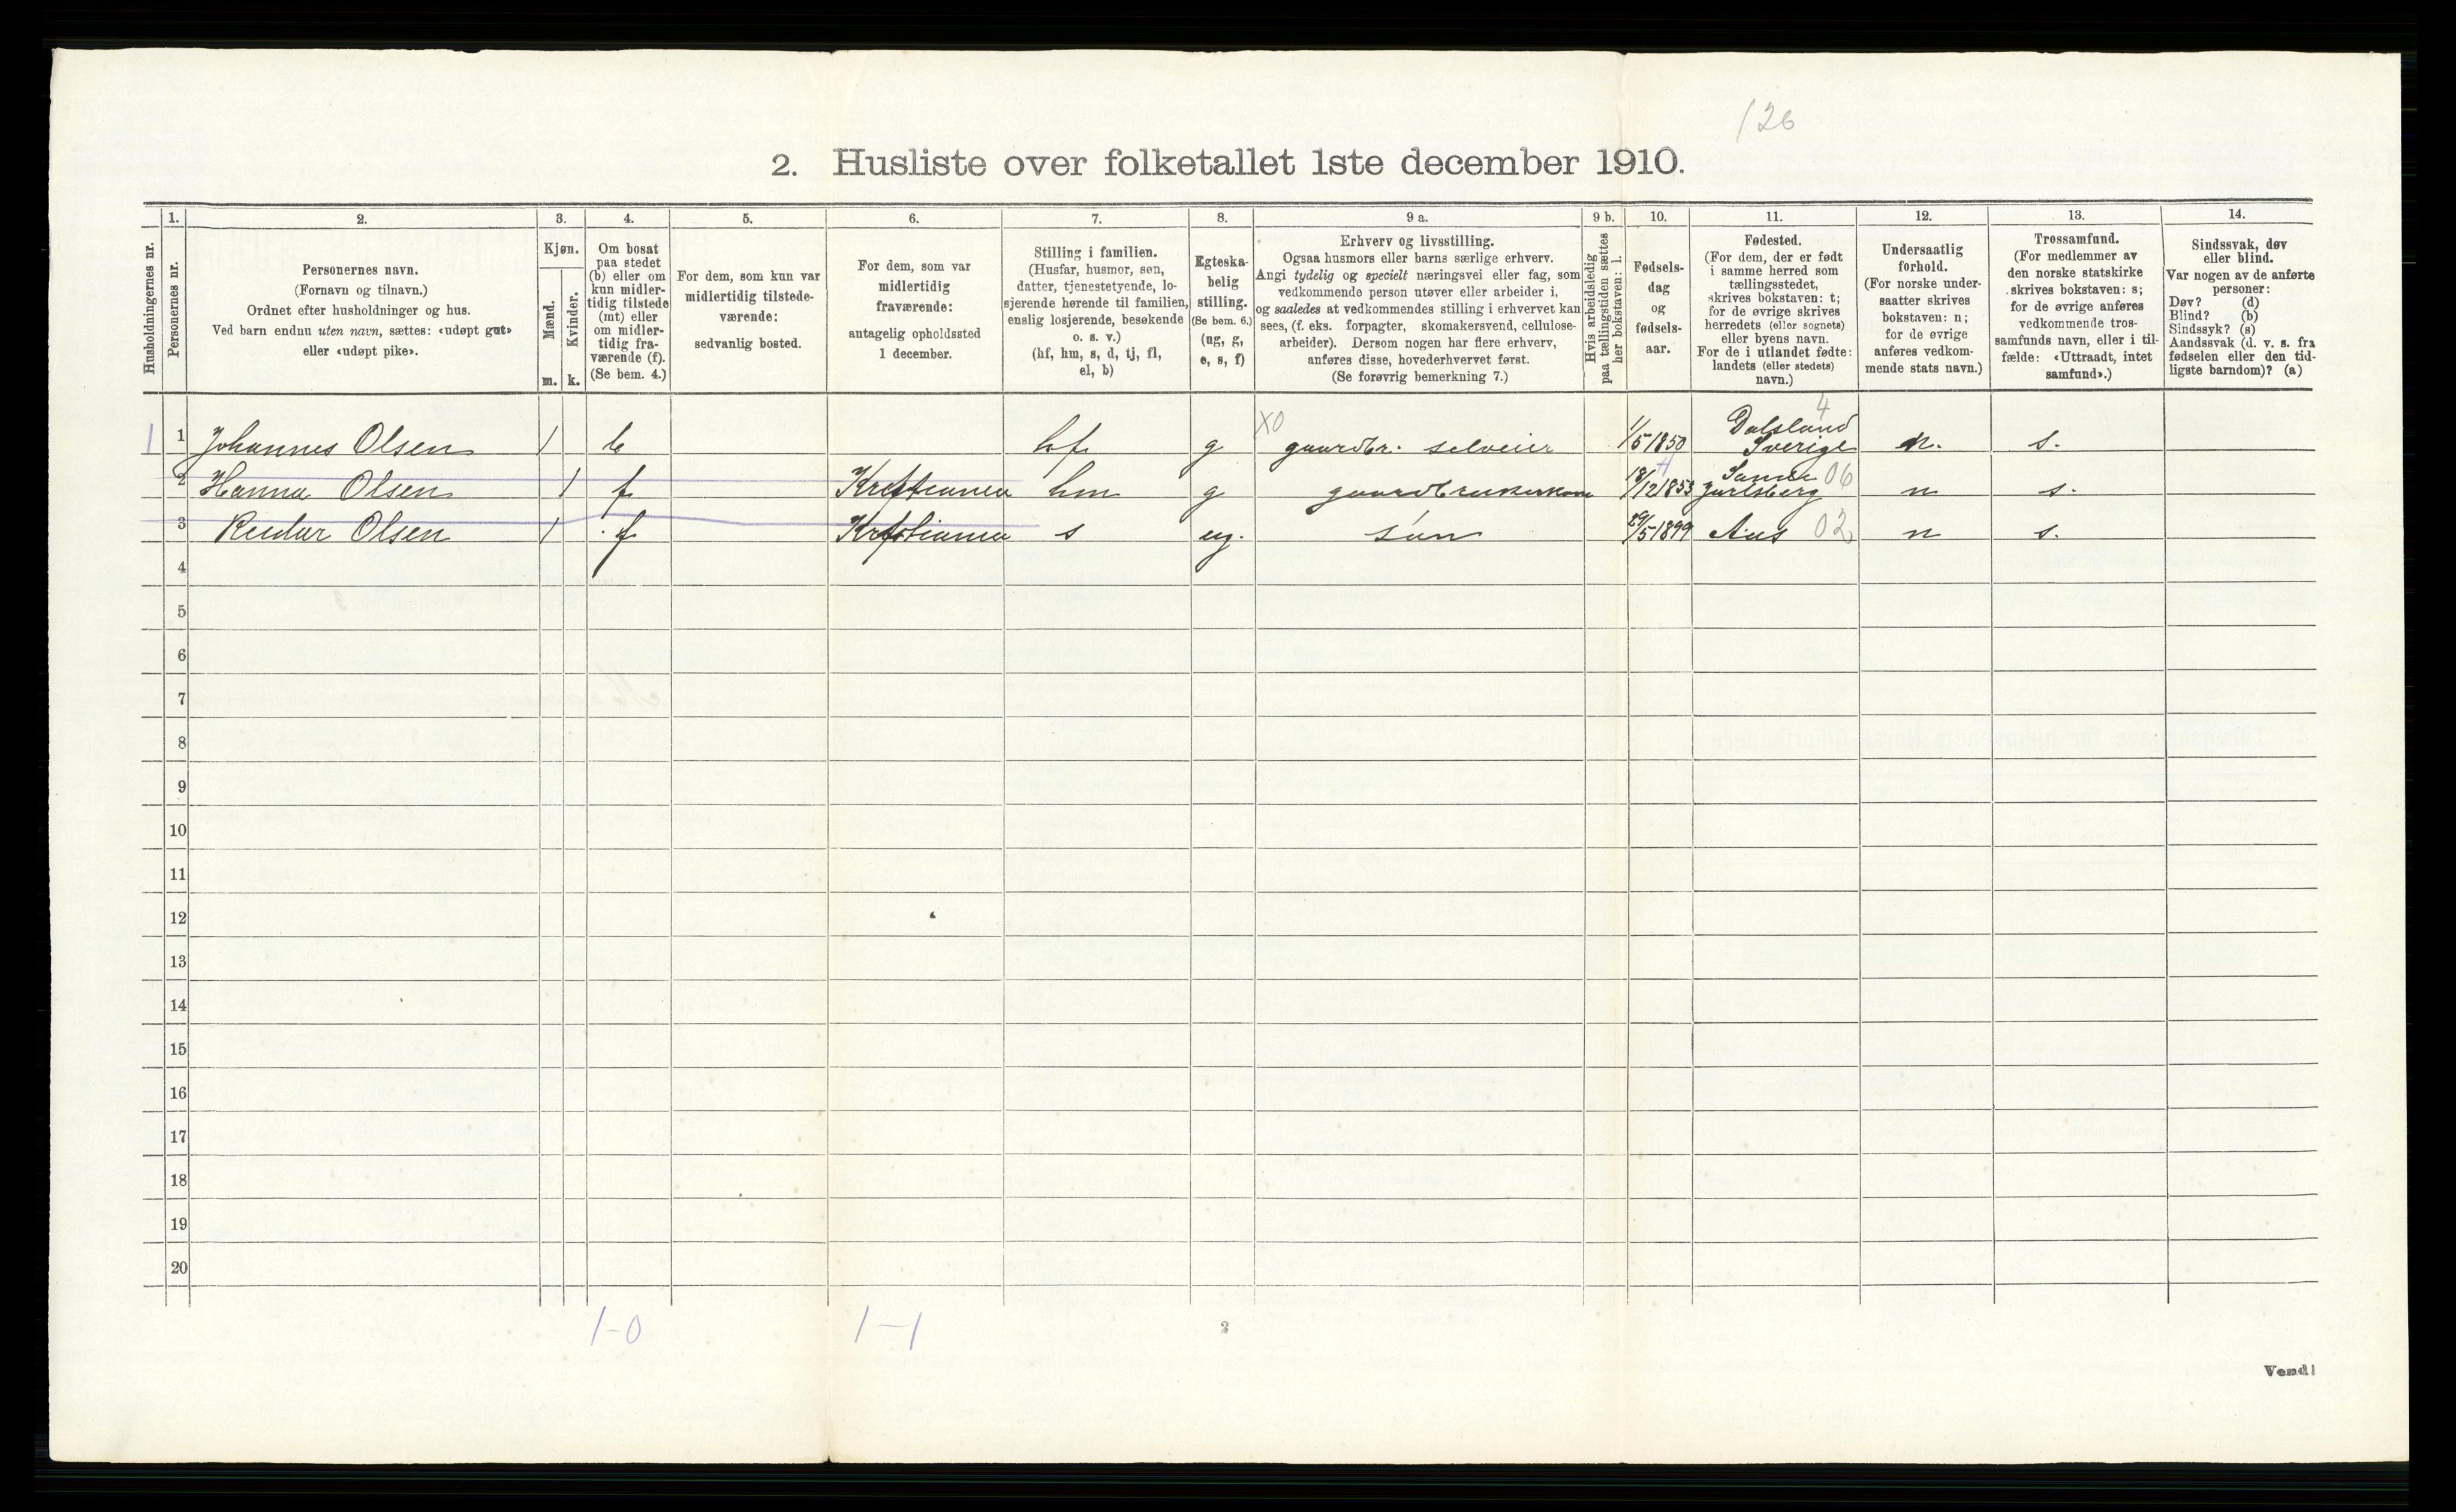 126
2. Husliste over folketallet 1ste december 1910.
Husholdningernes nr.
1.
Personernes nr.
2.
Personernes navn.
(Fornavn og tilnavn.)
Ordnet efter husholdninger og hus.
Ved barn endnu uten navn, sættes: «udøpt gut»
eller «udøpt pike».
3.
Kjøn.
Mænd.
Kvinder.
m. k.
4.
Om bosat
paa stedet
(b) eller om
kun midler-
tidig tilstede
(mt) eller
om midler-
tidig fra-
værende (f).
(Se bem. 4.)
5.
For dem, som kun var
midlertidig tilstede-
værende:
sedvanlig bosted.
6.
For dem, som var
midlertidig
fraværende:
antagelig opholdssted
1 december.
7.
Stilling i familien.
(Husfar, husmor, søn,
datter, tjenestetyende, lo-
sjerende hørende til familien,
enslig losjerende, besøkende
o. s. v.)
(hf, hm, s, d, tj, fl,
el, b)
8.
Egteska-
belig
stilling.
(Se bem. 6.)
(ug, g,
e, s, f)
9 a.
Erhverv og livsstilling.
Ogsaa husmors eller barns særlige erhverv.
Angi tydelig og specielt næringsvei eller fag, som
vedkommende person utøver eller arbeider i,
og saaledes at vedkommendes stilling i erhvervet kan
sees, (f. eks. forpagter, skomakersvend, cellulose-
arbeider). Dersom nogen har flere erhverv,
anføres disse, hovederhvervet først.
(Se forøvrig bemerkning 7.)
9 b.
Hvis arbeidsledig
paa tællingstiden sættes
her bokstaven: l.
10.
Fødsels-
dag
og
fødsels-
aar.
11.
Fødested.
(For dem, der er født
i samme herred som
tællingsstedet,
skrives bokstaven: t;
for de øvrige skrives
herredets (eller sognets)
eller byens navn.
For de i utlandet fødte:
landets (eller stedets)
navn.)
12.
Undersaatlig
forhold.
(For norske under-
saatter skrives
bokstaven: n;
for de øvrige
anføres vedkom-
mende stats navn.)
13.
Trossamfund.
(For medlemmer av
den norske statskirke
skrives bokstaven: s;
for de øvrige anføres
vedkommende tros-
samfunds navn, eller i til-
fælde: «Uttraadt, intet
samfund».)
14.
Sindssvak, døv
eller blind.
Var nogen av de anførte
personer:
Døv? (d)
Blind? (b)
Sindssyk? (s)
Aandssvak (d. v. s. fra
fødselen eller den tid-
ligste barndom)? (a)
1 1 Johannes Olsen 1 b hf g X0 gaardbr. selveier 1/5 1850 Dalsland 4 Sverige n. s.
2 Hanna Olsen 1 f Kristiania hm g gaardbrukerkone 18/12 1853 Sande Jarlsberg 06 n s.
3 Reidar Olsen 1 f Kristiania s ug. søn 29/5 1899 Aas 02 n s.
4
5
6
7
8
9
10
11
12
13
14
15
16
17
18
19
20
1-0 1-1
2
Vend!